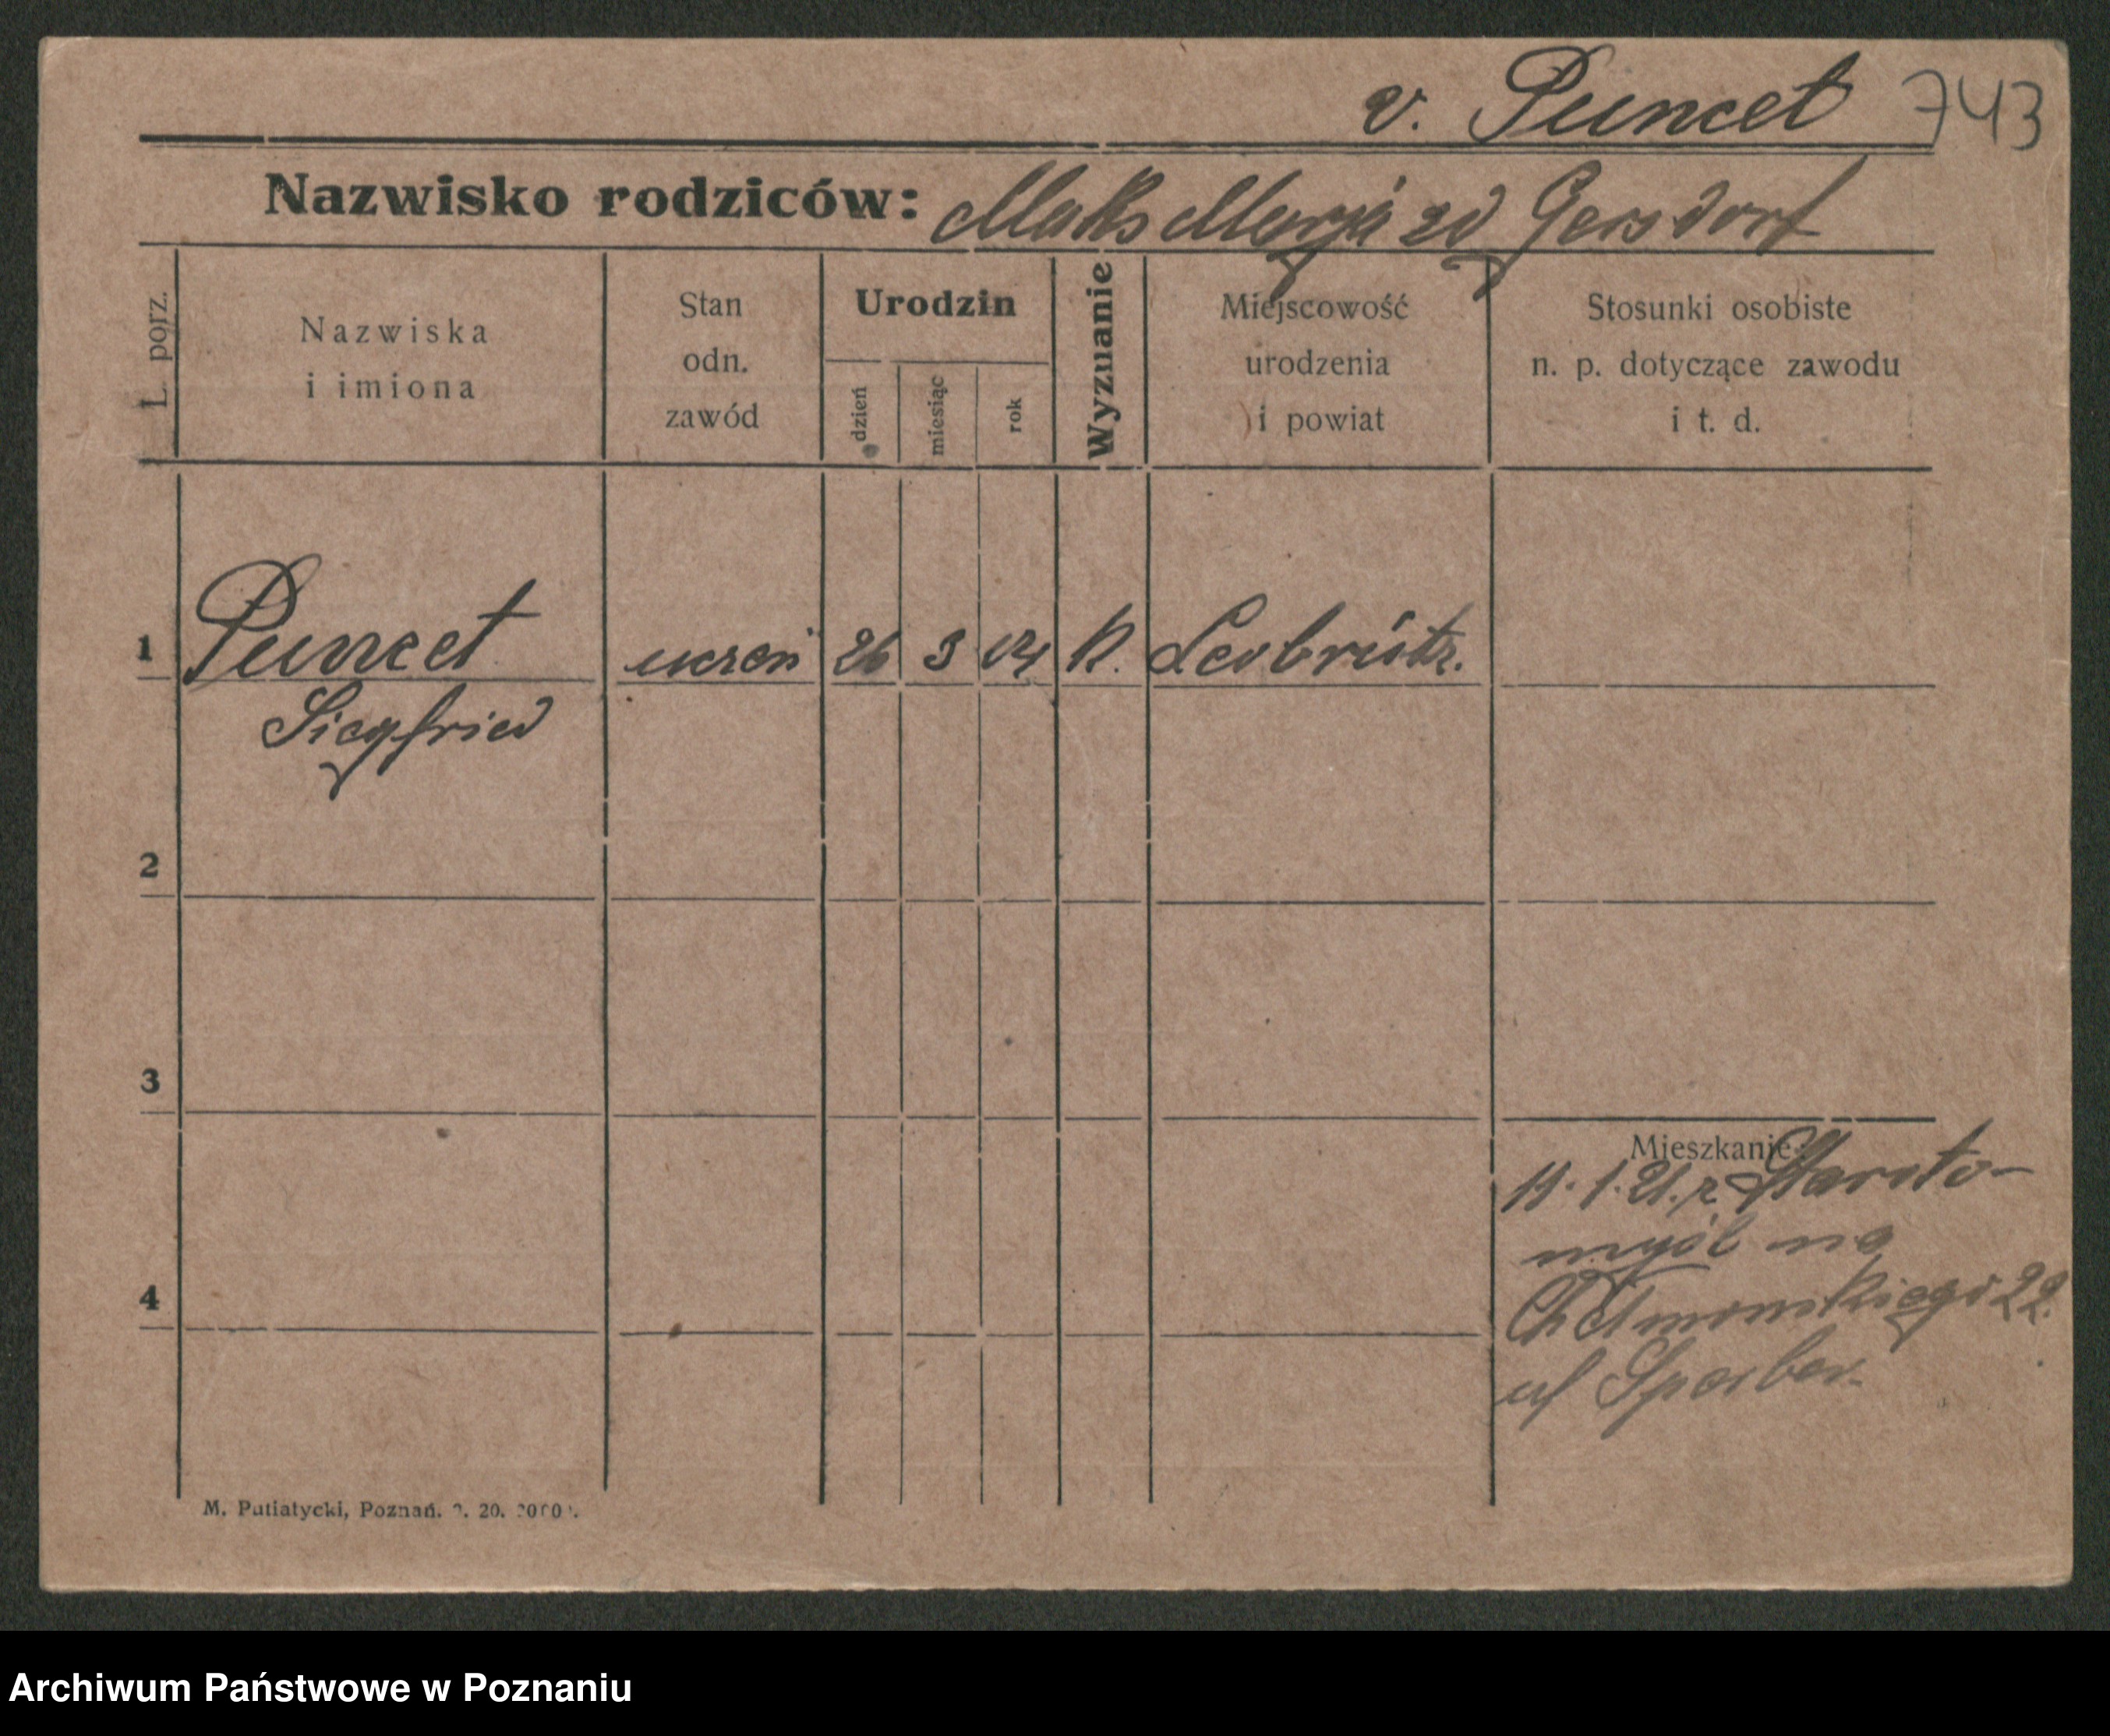 v. Puncet 743
Nazwisko rodziców: Maks Marja zd Gersdorf
L. porz.
Nazwiska
i imiona
Stan
odn.
zawód
Urodzin
dzień
miesiąc
rok
Wyznanie
Miejscowość
urodzenia
i powiat
Stosunki osobiste
n. p. dotyczące zawodu
i t. d.
1 Puncet uczeń 26 3 04 K.
Siegfried
2
3
Mieszkanie:
1.21. z Starito-
myśl na
Chełmonskiego 22.
4
M. Putiatycki, Poznań. 20.
Archiwum Państwowe w Poznaniu